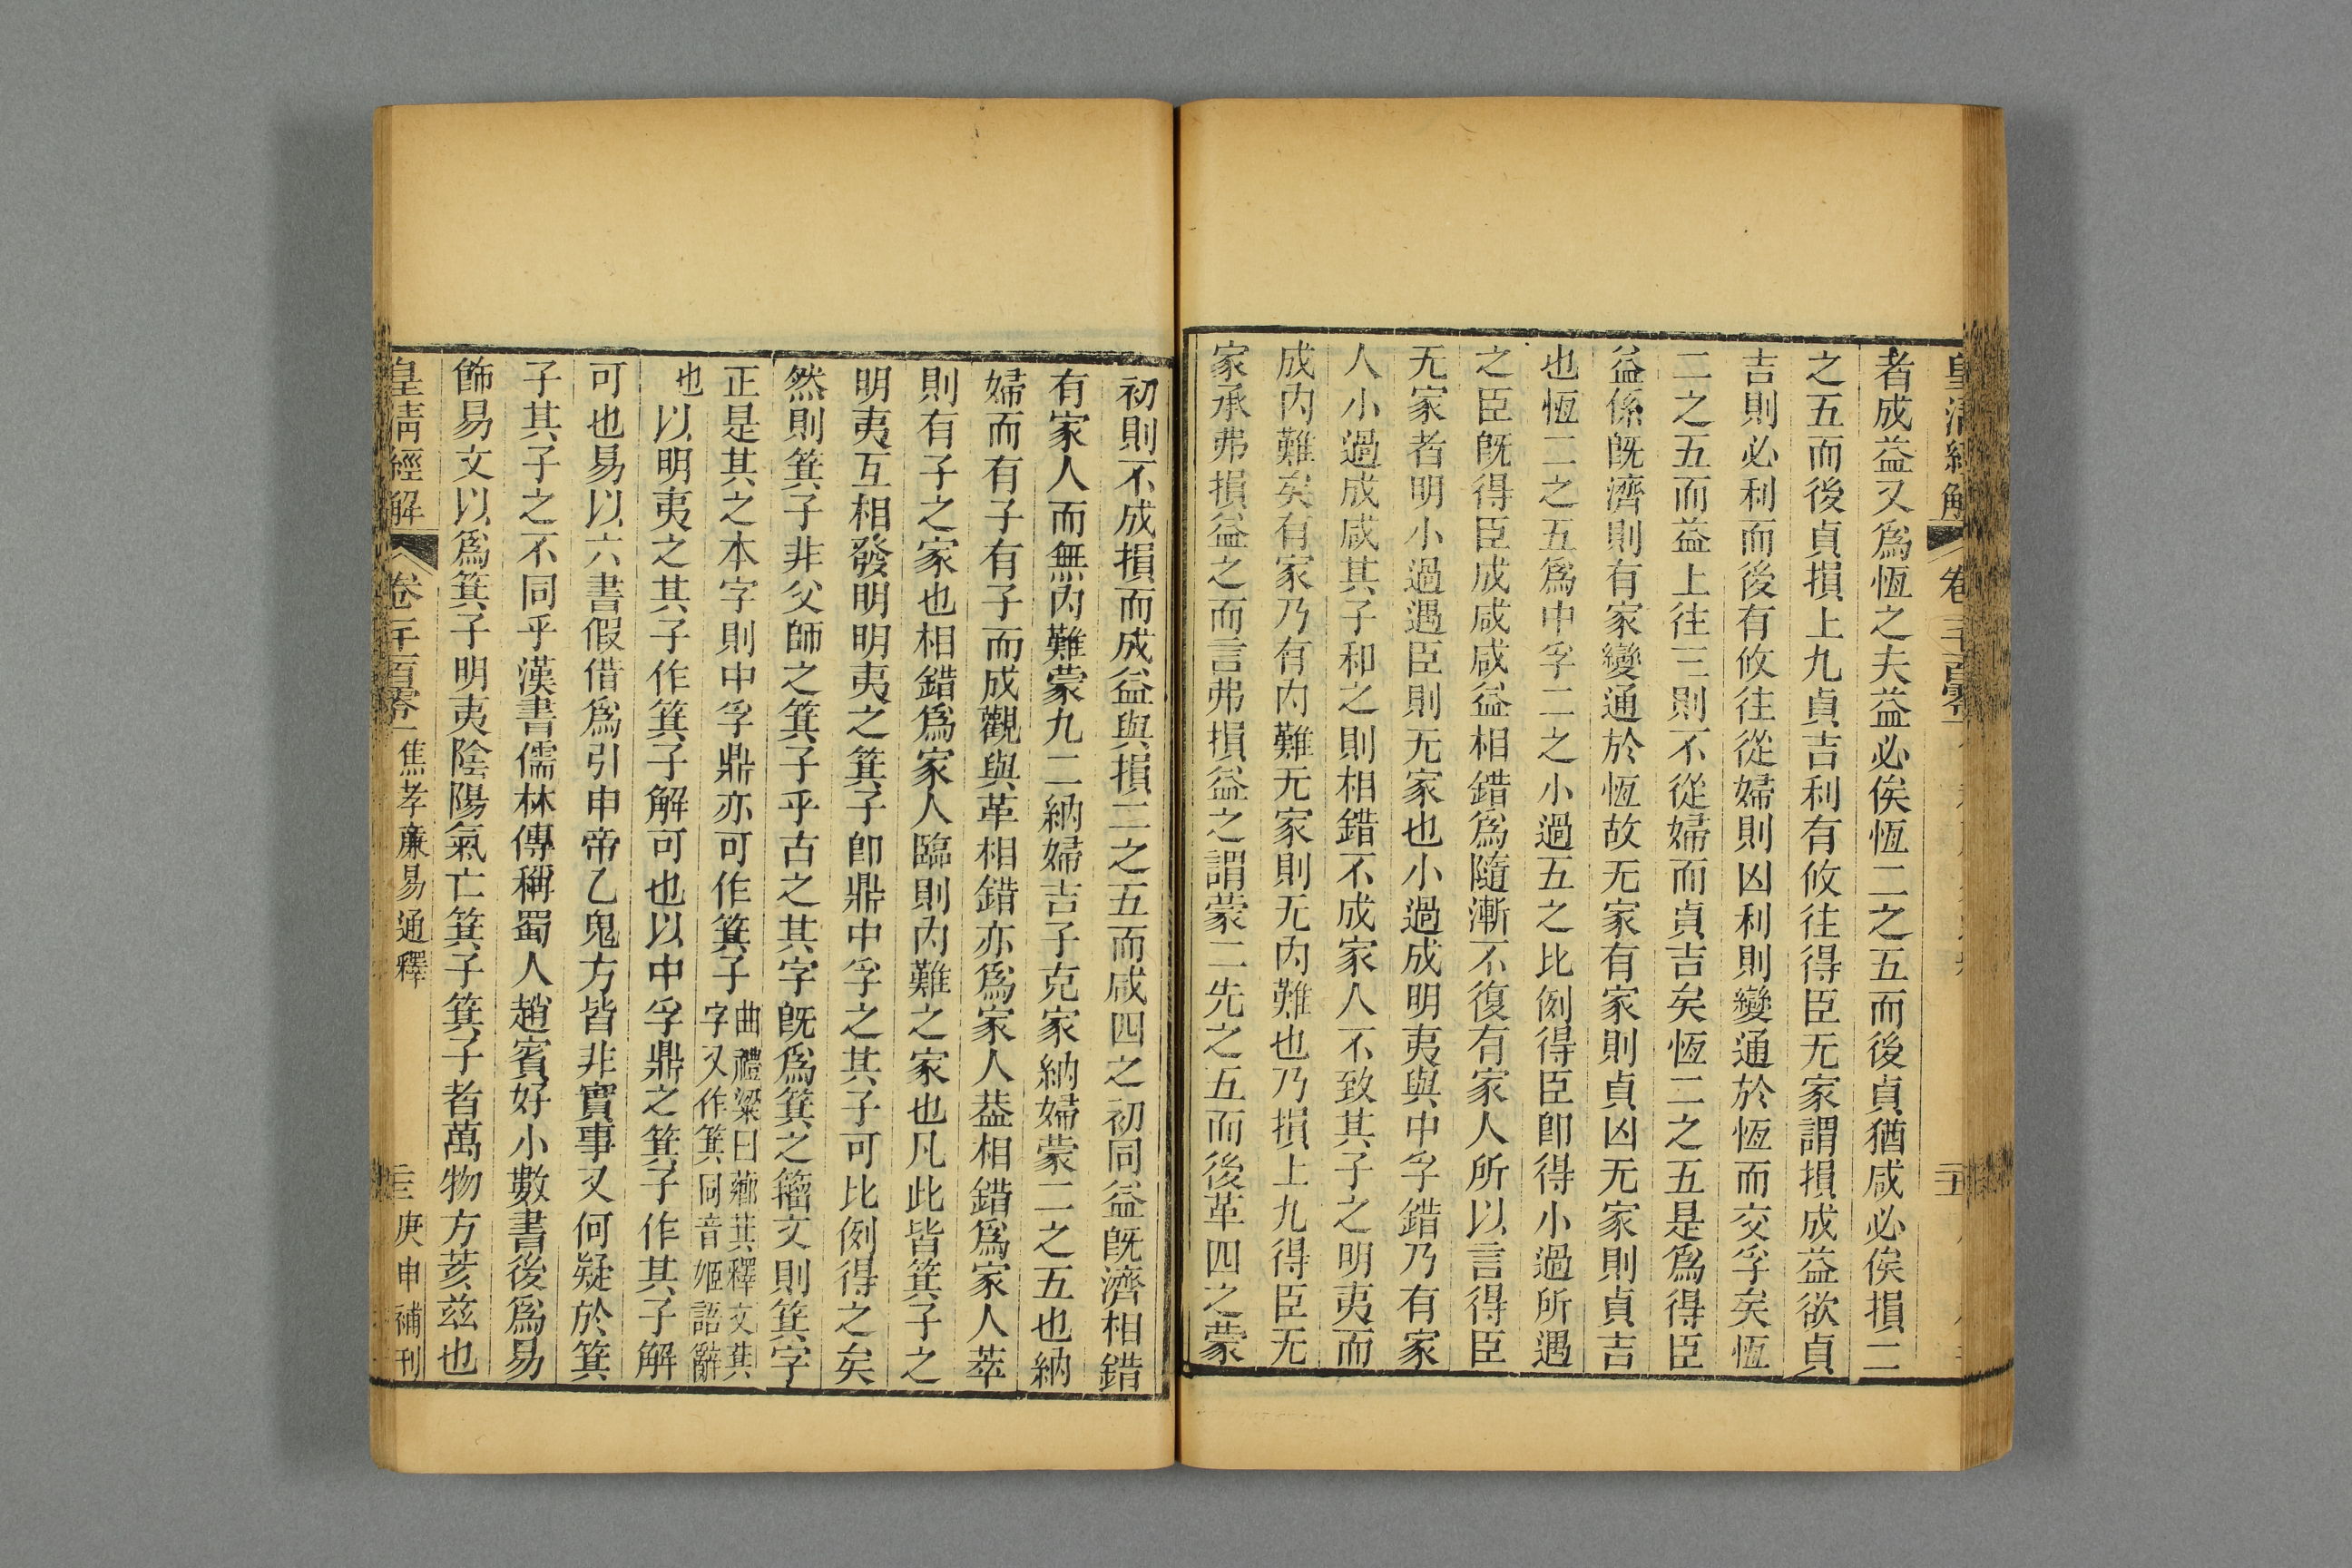 皇清經解
卷
者成益又爲恆之夫益必俟恆二之五而後貞猶咸必俟損二
之五而後貞損上九貞吉利有攸往得臣无家謂損成益欲貞
吉則必利而後有攸往從婦則凶利則變通於恆而交孚矣恆
二之五而益上往三則不從婦而貞吉矣恆二之五是爲得臣
益係旣濟則有家變通於恆故无家有家則貞凶无家則貞吉
也恆二之五爲中孚二之小過五之比例得臣卽得小過所遇
之臣旣得臣成咸咸益相錯爲隨漸不復有家人所以言得臣
无家者明小過遇臣則无家也小過成明夷與中孚錯乃有家
人小過成咸其子和之則相錯不成家人不致其子之明夷而
成內難矣有家乃有內難无家則无內難也乃損上九得臣无
家承弗損益之而言弗損益之謂蒙二先之五而後革四之蒙
初則不成損而成益與損二之五而咸四之初同益旣濟相錯
有家人而無內難蒙九二納婦吉子克家納婦蒙二之五也納
婦而有子有子而成觀與革相錯亦爲家人葢相錯爲家人萃
則有子之家也相錯爲家人臨則內難之家也凡此皆箕子之
明夷互相發明明夷之箕子卽鼎中孚之其子可比例得之矣
然則箕子非父師之箕子乎古之其字旣爲箕之籀文則箕字
正是其之本字則中孚鼎亦可作箕子曲禮粱曰薌萁釋文萁
字又作箕同音姬語辭
也以明夷之其子作箕子解可也以中孚鼎之箕子作其子解
可也易以六書假借爲引申帝乙鬼方皆非實事又何疑於箕
子其子之不同乎漢書儒林傳稱蜀人趙賓好小數書後爲易
飾易文以爲箕子明夷陰陽氣亡箕子箕子者萬物方荄茲也
皇淸經解 卷千百零一 焦孝廉易通釋 三 庚申補刊